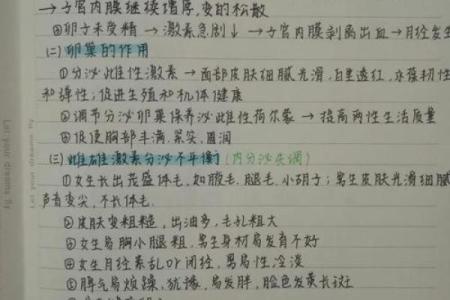 →子宫内膜继续增厚,变的松散
②卵子未受精→激素急剧↓→子宫内膜剥离出血→月经发生
(二)卵巢的作用
①分泌雌性激素→面部皮肤细腻光滑,白里透红,永葆韧性
和弹性;促进生殖和机体健康
②调节分泌卵巢保养泌雌性荷尔蒙→提高两性生活质量
③促使胸部丰满、紧实、圆润
(三)雌雄激素分泌不平衡(内分泌失调)
①女生长出茂盛体毛,如腋毛、腿毛、小胡子;男生皮肤光滑细腻
声音变尖,不长体毛.
②皮肤变粗糙,出油多,毛孔粗大
③女生易胸小腿粗,男生身材易发育不好
④女生月经紊乱or闭经,男易性冷淡
⑤脾气易烦燥、犹豫,易发胖,脸色发黄长斑
Let your dreams fly
Let your dreams fly